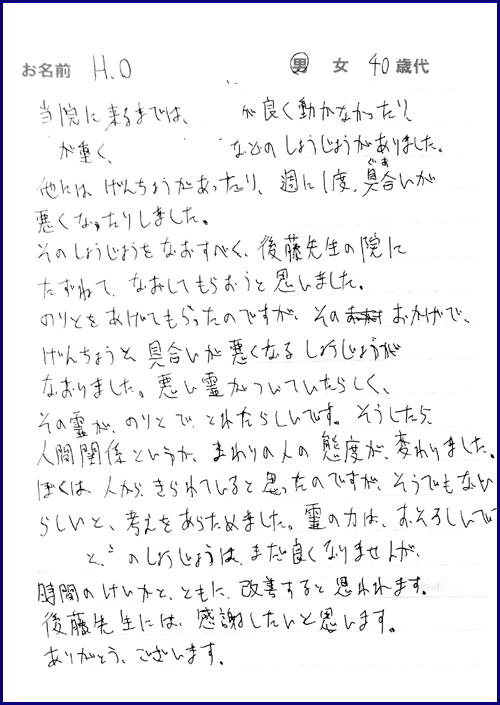 お名前 H.O 男 女 40歳代
当院に来るまでは、 が良く動かなかったり、
が重く、 などのしょうじょうがありました。
他には げんちょうがあったり、週に1度、具合いが
ぐあ
悪くなったりしました。
そのしょうじょうをなおすべく、後藤先生の院に
たずねて、なおしてもらおうと思いました。
のりとをあげてもらったのですが、その おかげで、
げんちょうと、具合いが悪くなるしょうじょうが
なおりました。悪い霊がついていたらしく、
その霊が、のりとで、とれたらしいです。そうしたら、
人間関係というか、まわりの人の態度が、変わりました。
ぼくは、人から、きらわれていると思ったのですが、そうでもない
らしいと、考えをあらためました。霊の力は、おそろしいです
と、 のしょうじょうは、まだ良くなりませんが、
時間のけいかと、ともに、改善すると思われます。
後藤先生には、感謝したいと思います。
ありがとう、ございます。